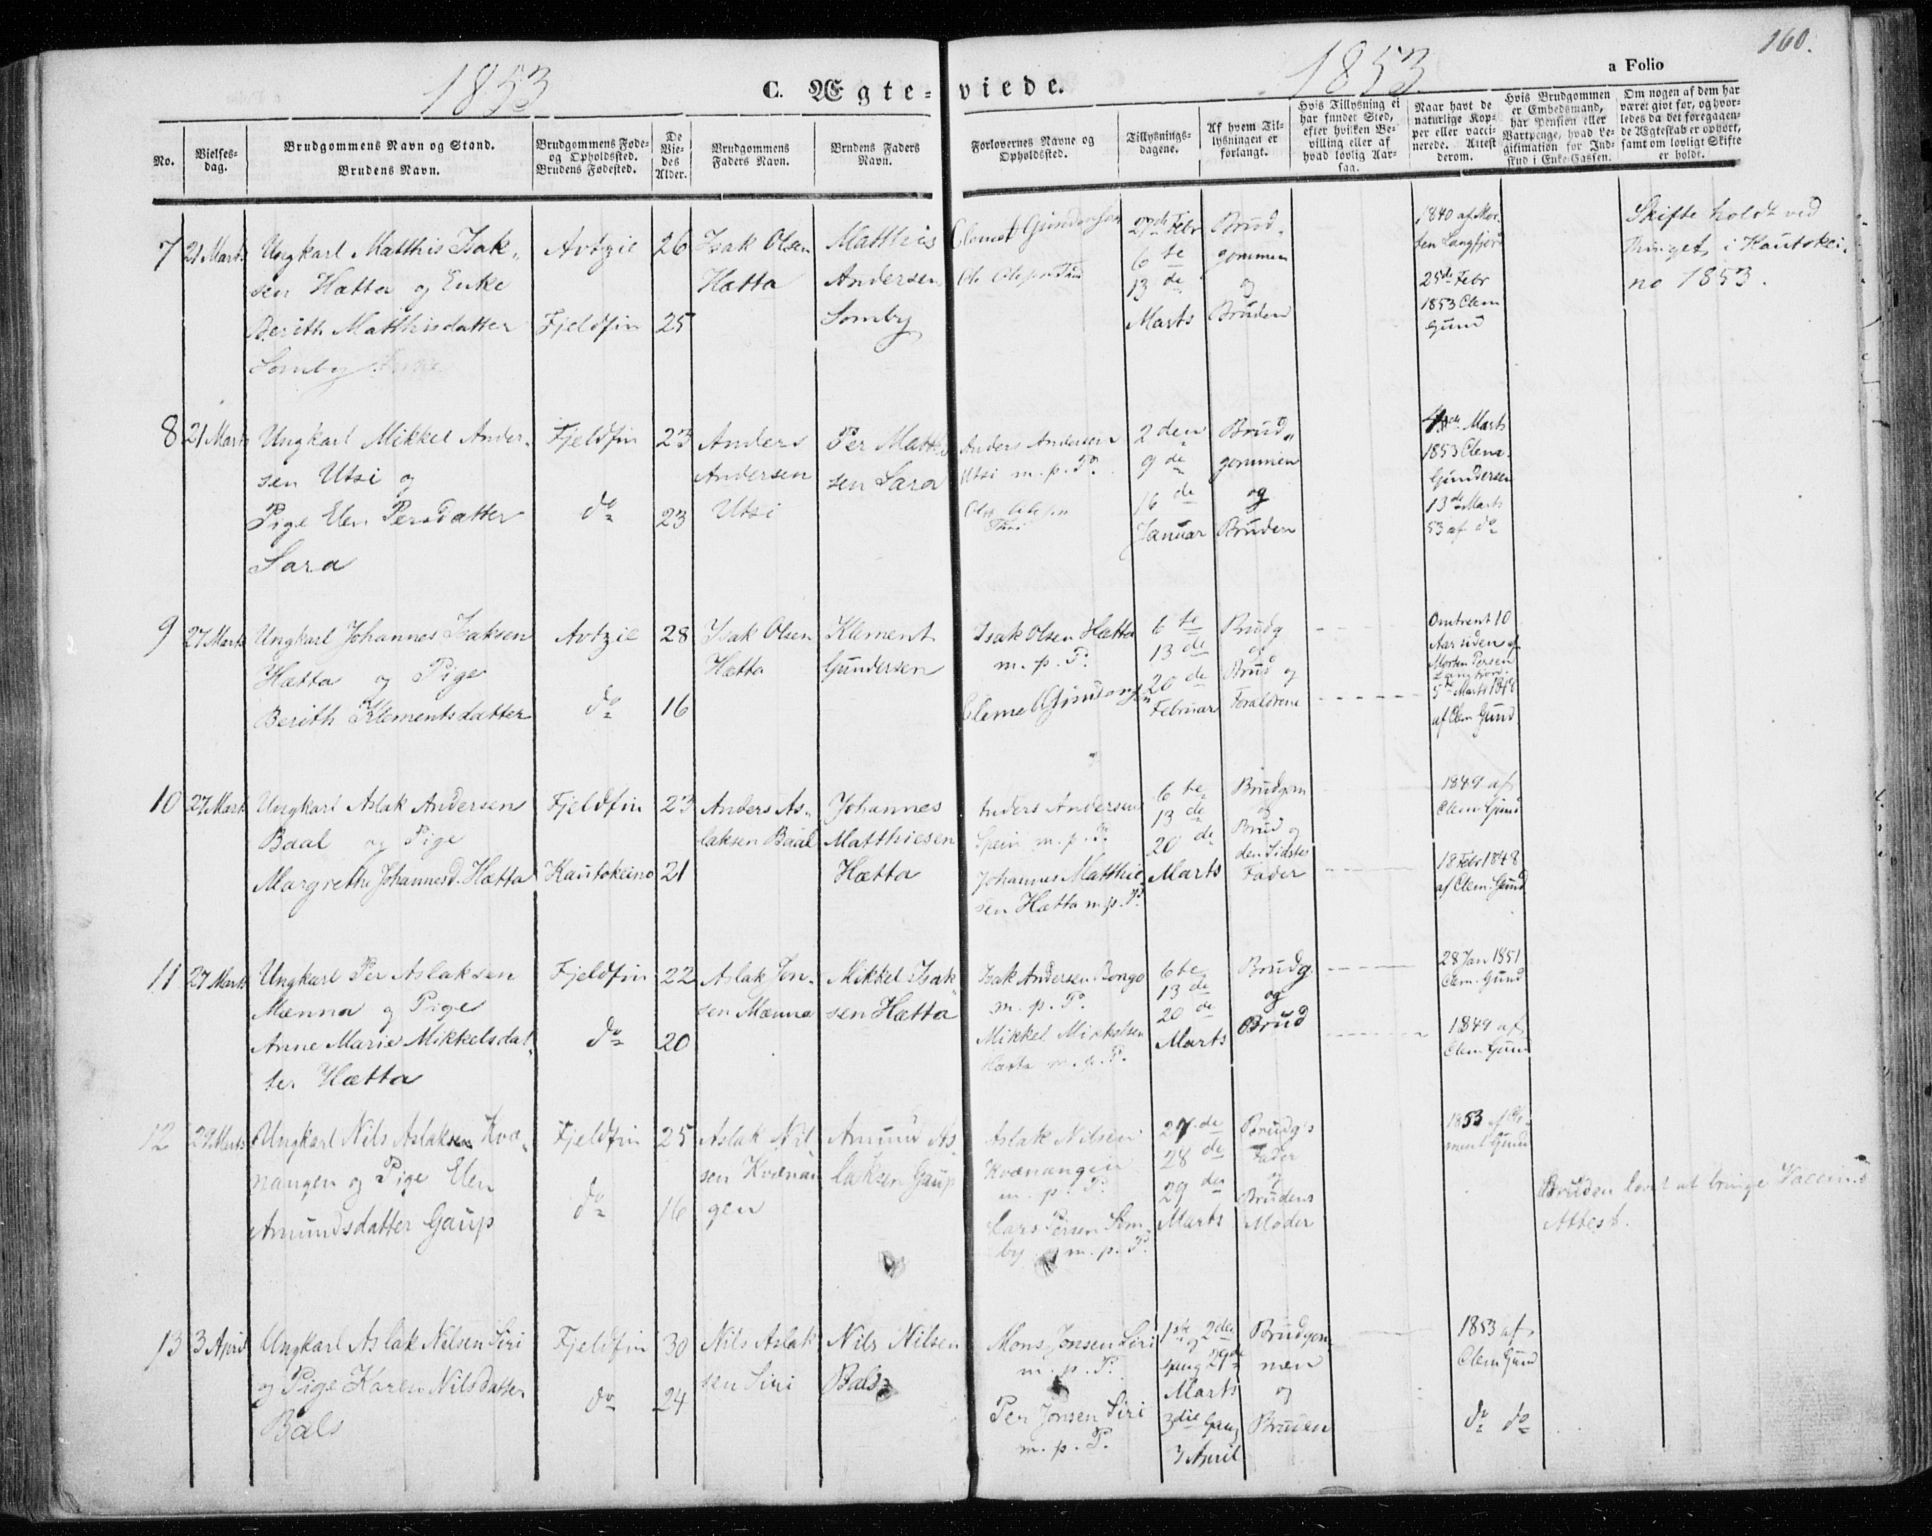 160.
1853
1853.
C. Ægte-viede.
a Folio
No.
Vielses-
dag.
Brudgommens Navn og Stand.
Brudens Navn.
Brudgommens Føde-
og Opholdssted.
Brudens Fødested.
De
Vie-
des
Alder.
Brudgommens
Faders Navn.
Brudens Faders
Navn.
Forlovernes Navne og
Opholdssted.
Tillysnings-
dagene.
Af hvem Til-
lysningen er
forlangt.
Hvis Tillysning ei
har fundet Sted,
efter hvilken Be-
villing eller af
hvad lovlig Aar-
sag.
Naar havt de
naturlige Kop-
per eller vacci-
nerede. Attest
derom.
Hvis Brudgommen
er Embedsmand,
har Pension eller
Vartpenge, hvad Le-
gitimation for Ind-
skud i Enke-Cassen.
Om nogen af dem har
været givt før, og hvor-
ledes da det foregaaen-
de Ægteskab er ophørt,
samt om lovligt Skifte
er holdt.
7
21 Marts
Ungkarl Matthis Isak-
sen Hætta og Enke
Berith Matthisdatter
Somby
Avtzie
Fjeldfin
26
25
Isak Olsen
Hætta
Matthis
Andersen
Somby
Clemet Gundersen
27de Febr
6te
13de
Marts
Brud-
gommen
og
Bruden
1840 af Mor-
ten Langfjord
25de Febr
1853 Clem
Gund
Skifte holdt ved
Thinget i Kautokei-
no 1853.
8
21 Marts
Ungkarl Mikkel Ander-
sen Utsi og
Pige Elen Persdatter
Sara
Fjeldfin
do
23
23
Anders
Andersen
Utsi
Per Matthi
sen Sara
Anders Andersen
Utsi m. p. P.
2den
9de
16de
Januar
Brud-
gommen
og
Bruden
Marts
1853 Clem.
Gundersen
13de Marts
53 af do
9
27 Marts
Ungkarl Johannes Isaksen
Hætta og Pige
Berith Klementsdatter
Avtzie
do
28
16
Isak Olsen
Hætta
Klement
Gundersen
Isak Olsen Hætta
m. p. P.
Clemet Gundersen
6te
13de
20de
Februar
Brudg
og
Brud og
Forældrene
Omtrent 10
Aar siden af
Morten Persen
Langfjord
5te Marts 1848
af Clem Gund
10
27 Marts
Ungkarl Aslak Andersen
Baal og Pige
Margrethe Johannesd. Hætta
Fjeldfin
Kautokeino
23
21
Anders As-
laksen Baal
Johannes
Matthiesen
Hætta
Anders Andersen
Spein m. p. P.
Johannes Matthie-
sen Hætta m. p. P.
6te
13de
20de
Marts
Brudgom
og
Brud og
den Sidstes
Fader
1849 af
Clem. Gund
18 Febr 1848
af Clem. Gund
11
27 Marts
Ungkarl Per Aslaksen
Mænna og Pige
Anne Marie Mikkelsdat-
ter Hætta
Fjeldfin
do
22
20
Aslak Jon-
sen Mænna
Mikkel Isak-
sen Hætta
Isak Andersen Bongo
m. p. P.
Mikkel Mikkelsen
Hætta m. p. P.
6te
13de
20de
Marts
Brudg
og
Brud
28 Jan 1851
Clem. Gund
1849 af
Clem. Gund
12
29 Marts
Ungkarl Nils Aslaksen Kvæ-
nangen og Pige Elen
Amundsdatter Gaup
Fjeldfin
do
25
16
Aslak Nil
sen Kvænan
gen
Amund As-
laksen Gaup
Aslak Nilsen
Kvænangen
m. p. P.
Lars Persen Som-
by m. p. P.
27de
28de
29de
Marts
Brudg's
Fader
og
Brudens
Moder
1853 af Cle-
ment Gund
Bruden lovet at bringe Vaccine
Attest.
13
3 April
Ungkarl Aslak Nilsen Siri
og Pige Karen Nilsdatter
Bals
Fjeldfin
do
30
24
Nils Aslak
sen Siri
Nils Nilsen
Bals
Mons Jonsen Siri
m. p. P.
Per Jonsen Siri
m. p. P.
1ste og 2den
Gang 29de
Marts
3die Gang
3 April
Brudgom-
men
og
Bruden
1853 af
Clem Gund
do do